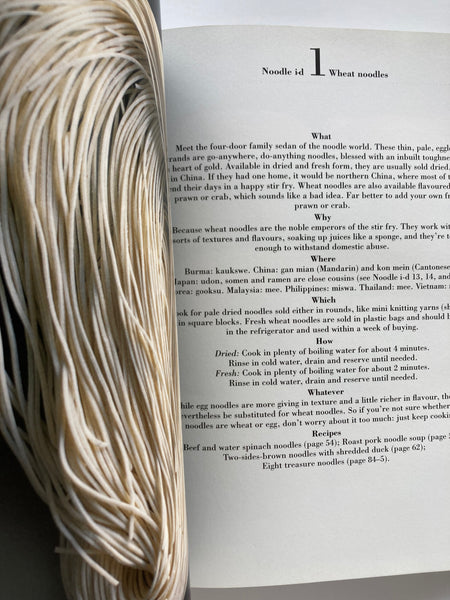 Noodle id 1 Wheat noodles
What
Meet the four-door family sedan of the noodle world. These thin, pale,
are go-anywhere, do-anything noodles, blessed with an inbuilt
heart of gold. Available in dried and fresh form, they are usually sold dried.
in China. If they had one home, it would be northern China, where most of
their days in a happy stir fry. Wheat noodles are also available flavoured
prawn or crab, which sounds like a bad idea. Far better to add your own
prawn or crab.
Why
Because wheat noodles are the noble emperors of the stir fry. They work
sorts of textures and flavours, soaking up juices like a sponge, and
enough to withstand domestic abuse.
Where
Burma: kaukswe. China: gan mian (Mandarin) and kon mein (Cantonese
udon, somen and ramen are close cousins (see Noodle i-d 13, 14, and
gooksu. Malaysia: mee. Philippines: miswa. Thailand: mee.
Which
for pale dried noodles sold either in rounds, like mini knitting yarns
in square blocks. Fresh wheat noodles are sold in plastic bags and should
in the refrigerator and used within a week of buying.
How
Dried: Cook in plenty of boiling water for about 4 minutes.
Rinse in cold water, drain and reserve until needed.
Fresh: Cook in plenty of boiling water for about 2 minutes.
Rinse in cold water, drain and reserve until needed.
Whatever
egg noodles are more giving in texture and a little richer in flavour,
be substituted for wheat noodles. So if you're not sure
noodles are wheat or egg, don't worry about it too much: just keep
Recipes
Beef and water spinach noodles (page 54); Roast pork noodle soup (page
Two-sides-brown noodles with shredded duck (page 62);
Eight treasure noodles (page 84–5).